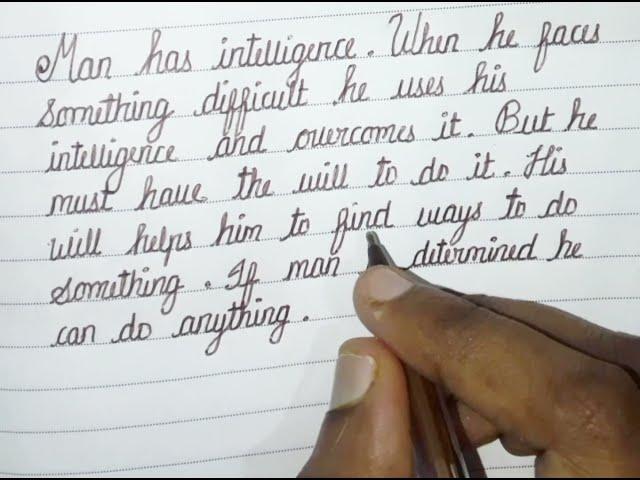 Man has intelligence. When he faces
something difficult he uses his
intelligence and overcomes it. But he
must have the will to do it. His
will helps him to find ways to do
something. If man determined he
can do anything.